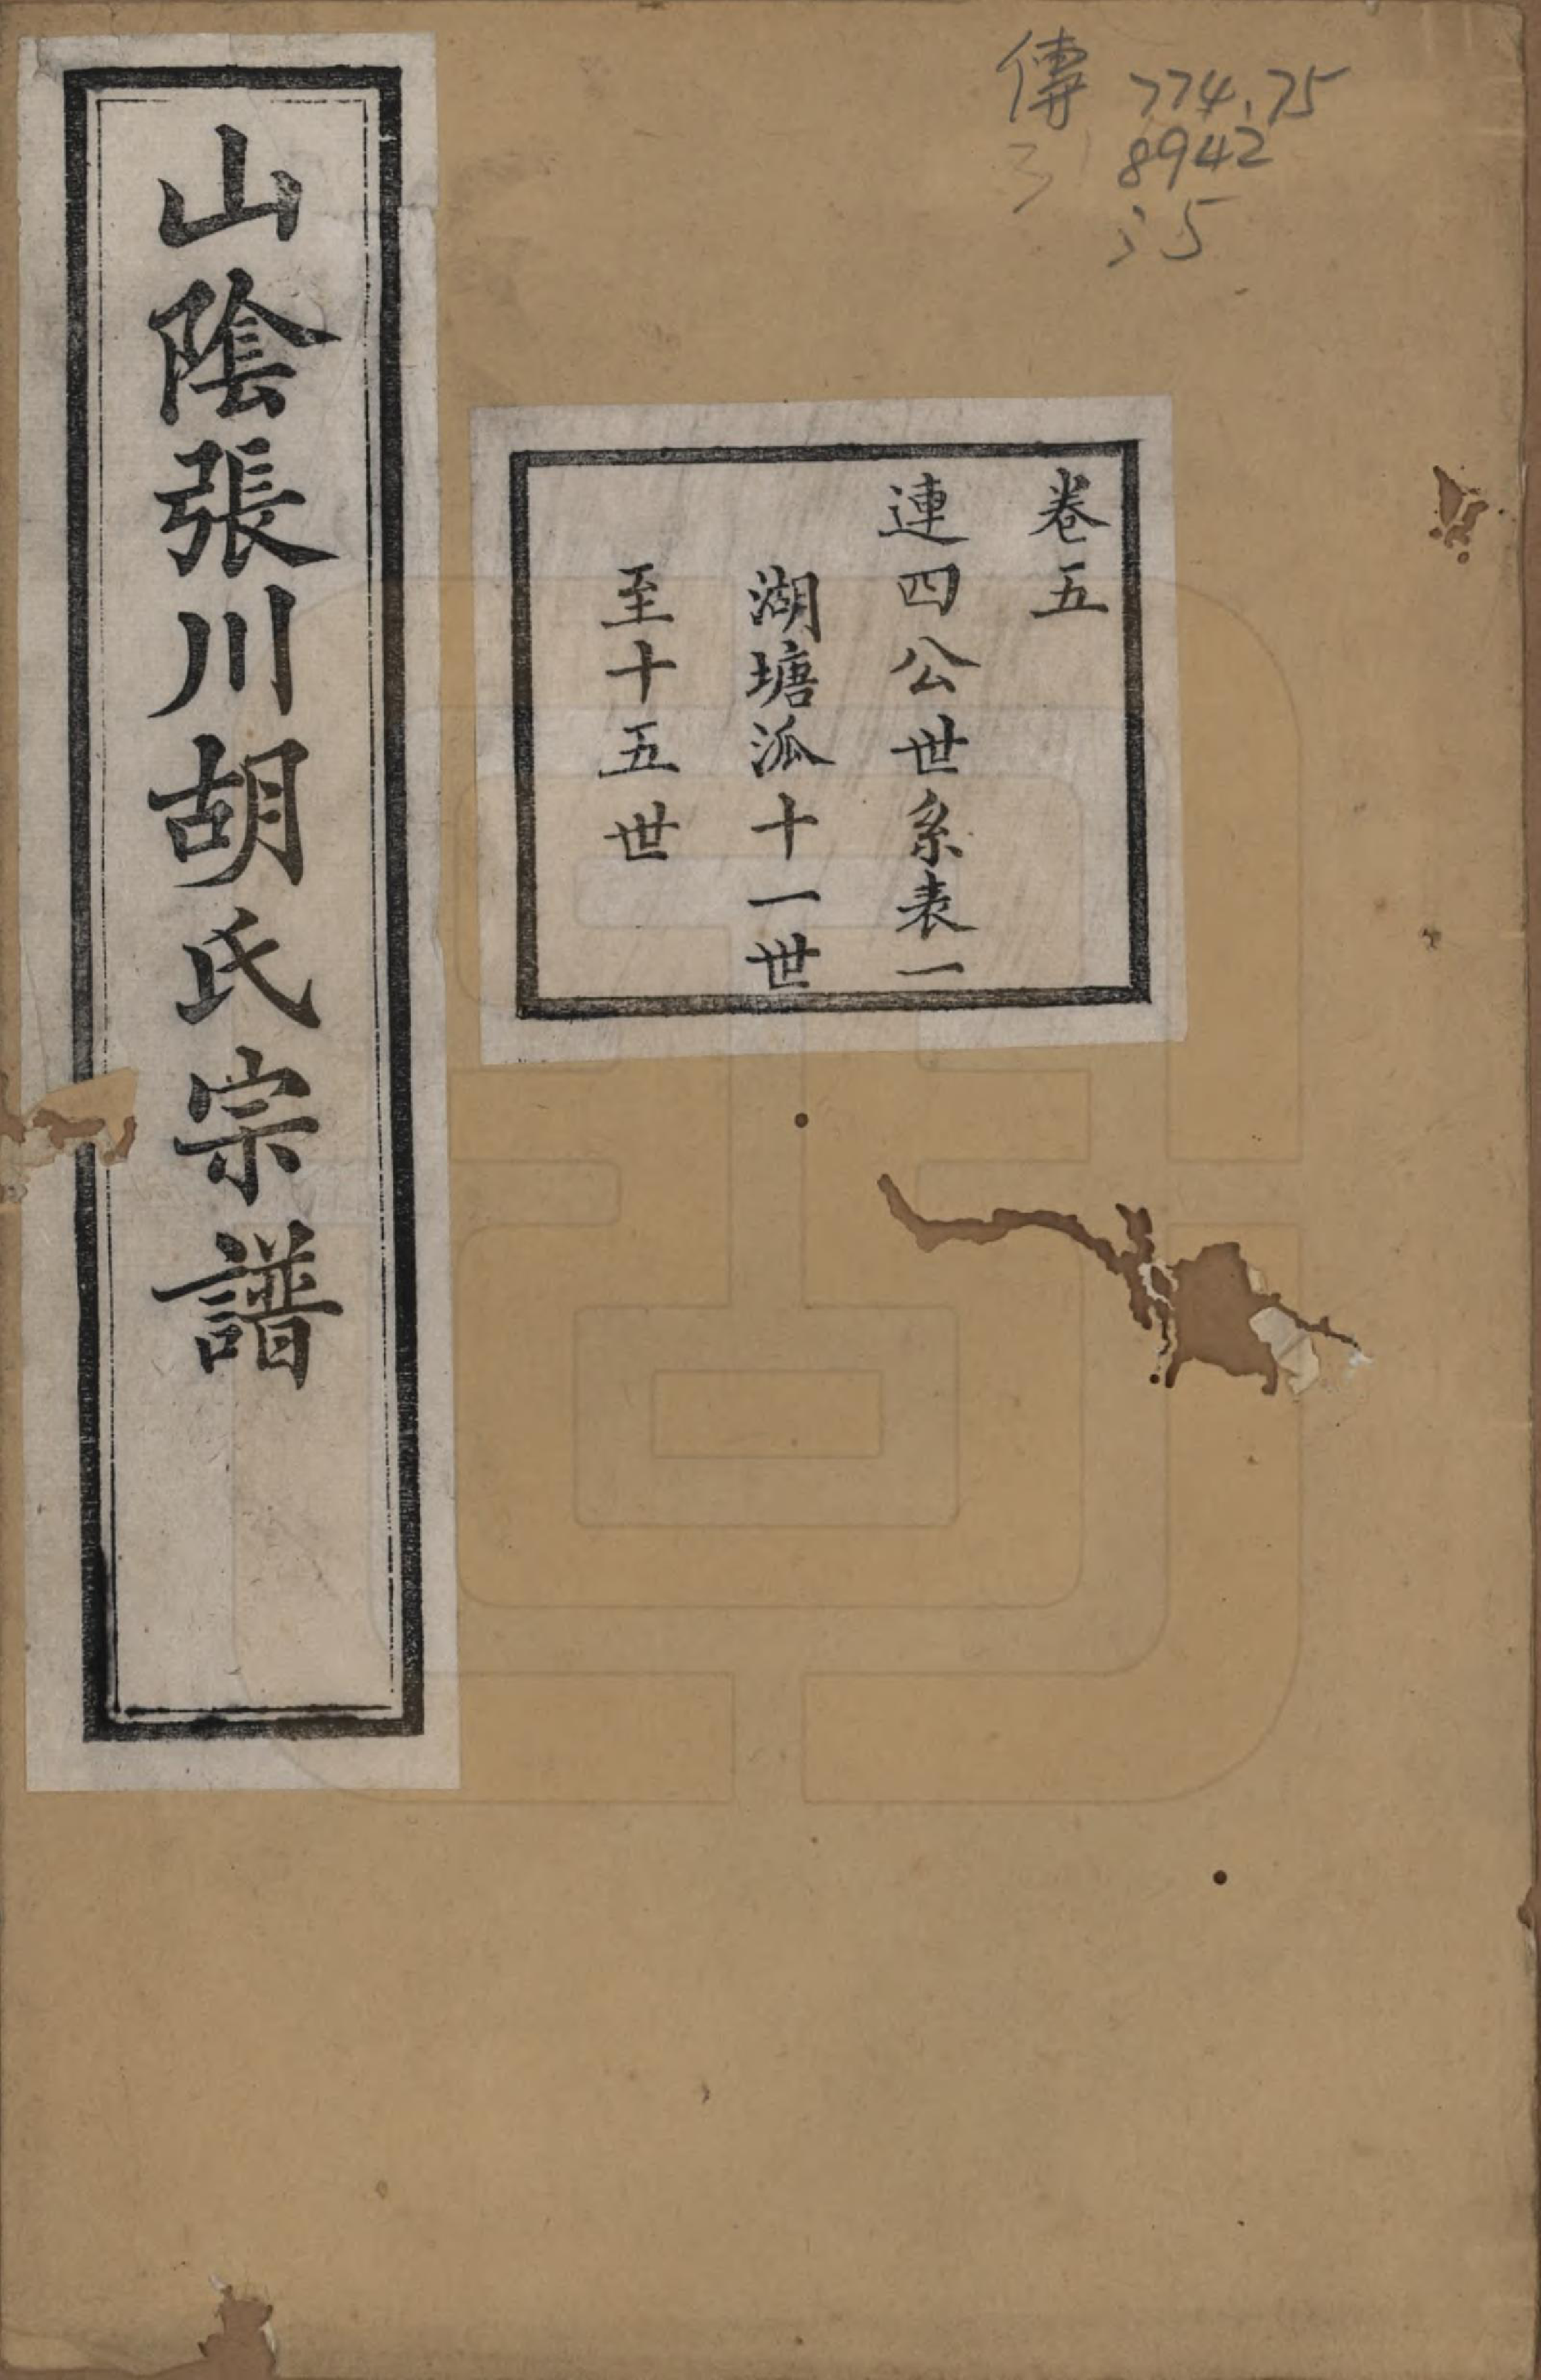 傳 774.75
8942
:5
卷五
連四公世系表一
湖塘派十一世
至十五世
山陰張川胡氏宗譜